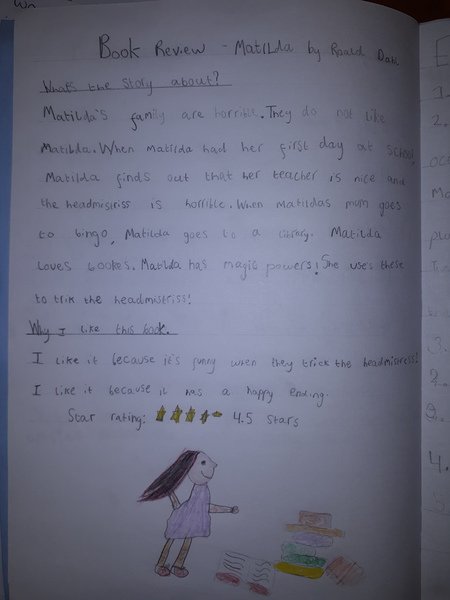 Book Review - Matilda by Roald Dahl
What's the story about?
Matilda's family are horrible. They do not like
Matilda. When Matilda had her first day at school
Matilda finds out that her teacher is nice and
the headmisiriss is horrible. When matildas mum goes
to bingo, Matilda goes to a library. Matilda
loves bookes. Matilda has magic powers! She use's these
to trik the headmistriss!
Why I like this book.
I like it because it's funny when they trick the headmistress!
I like it because it has a happy ending.
Star rating: 4.5 stars
1.
2.
3.
2.
4.